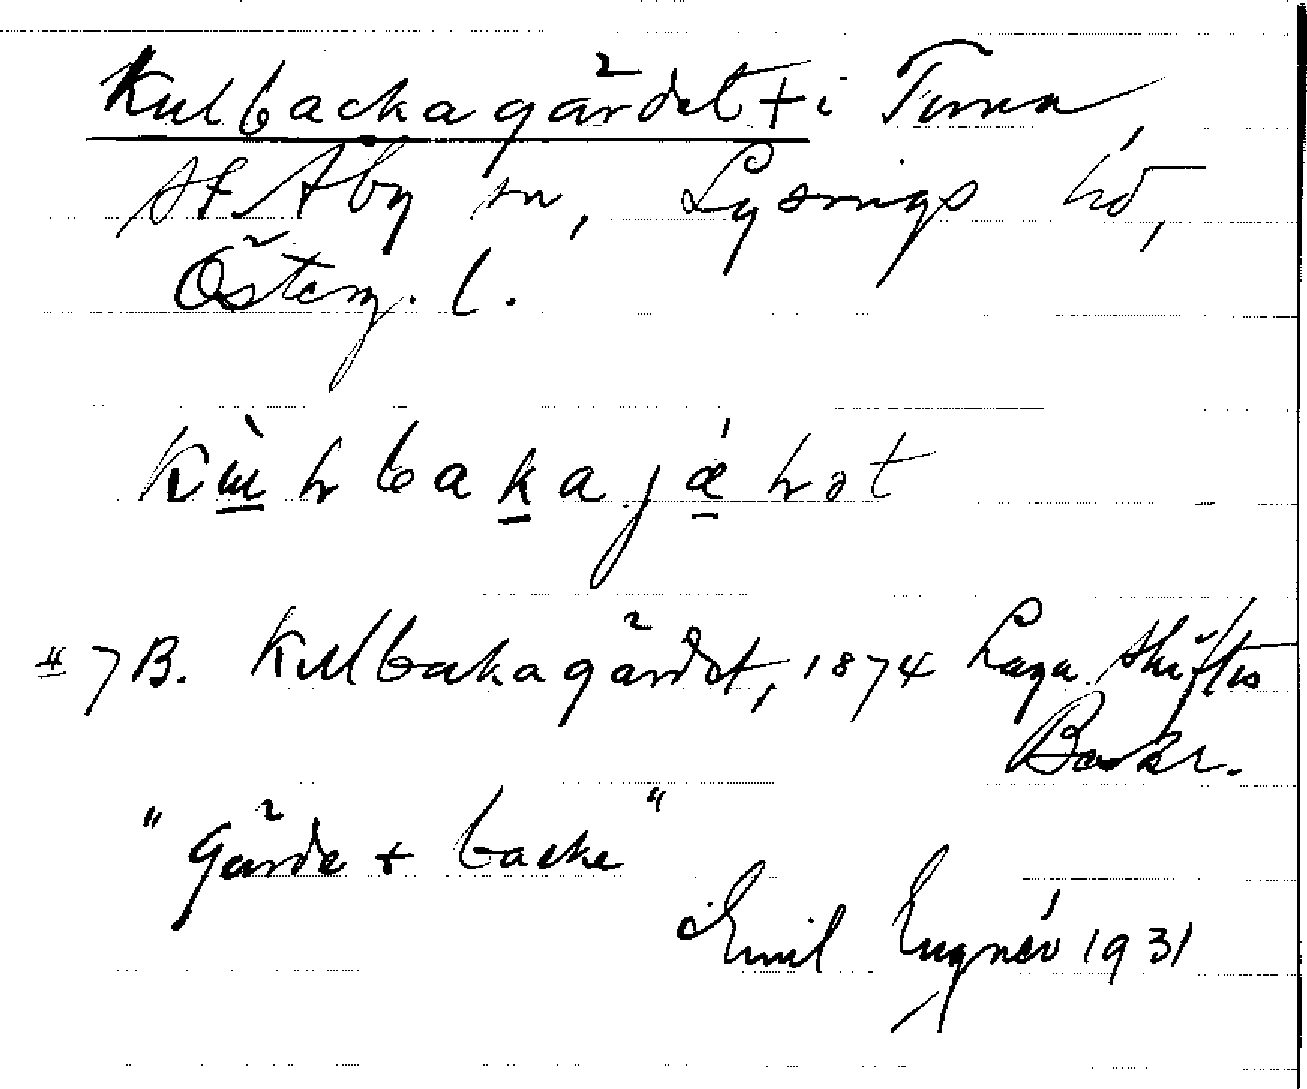 Kulbackagärdet + i Tuna,
St. Åby sn, Lysings hd,
Österg. l.
kùɯ̀hbakajǽhət
# 7 B. Kulbackagärdet, 1874 Laga skiftes
Beskr.
"Gärde + backe"
Emil 1931